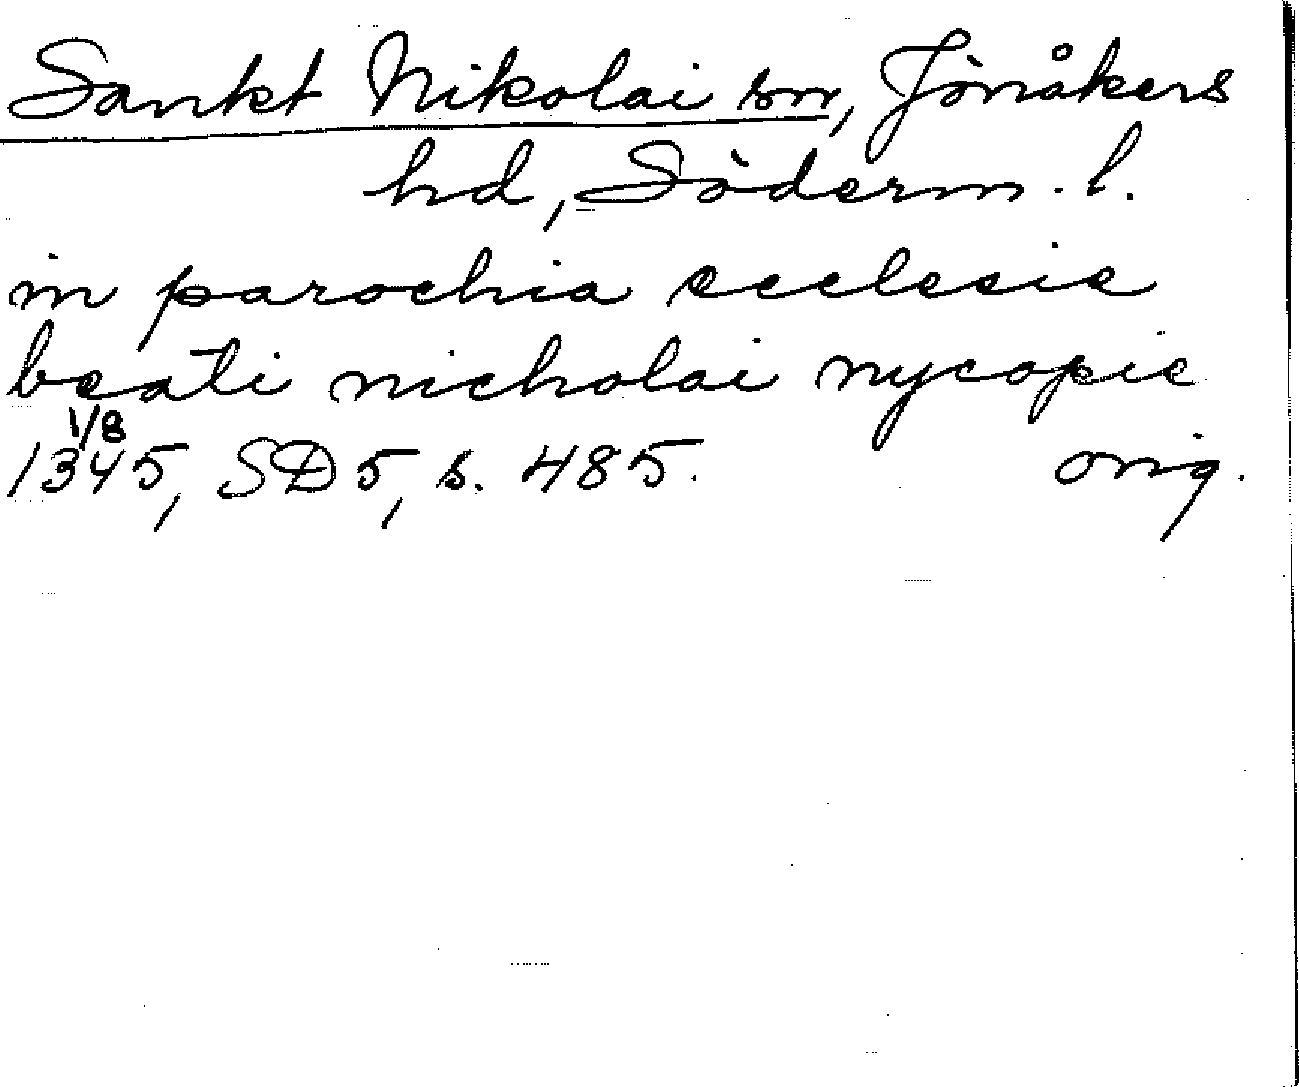 Sankt Nikolai sn, Jönåkers
hd, Söderm. l.
in parochia ecclesie
beati nicholai nycopie
1/8
1345, SD 5, s. 485. orig.